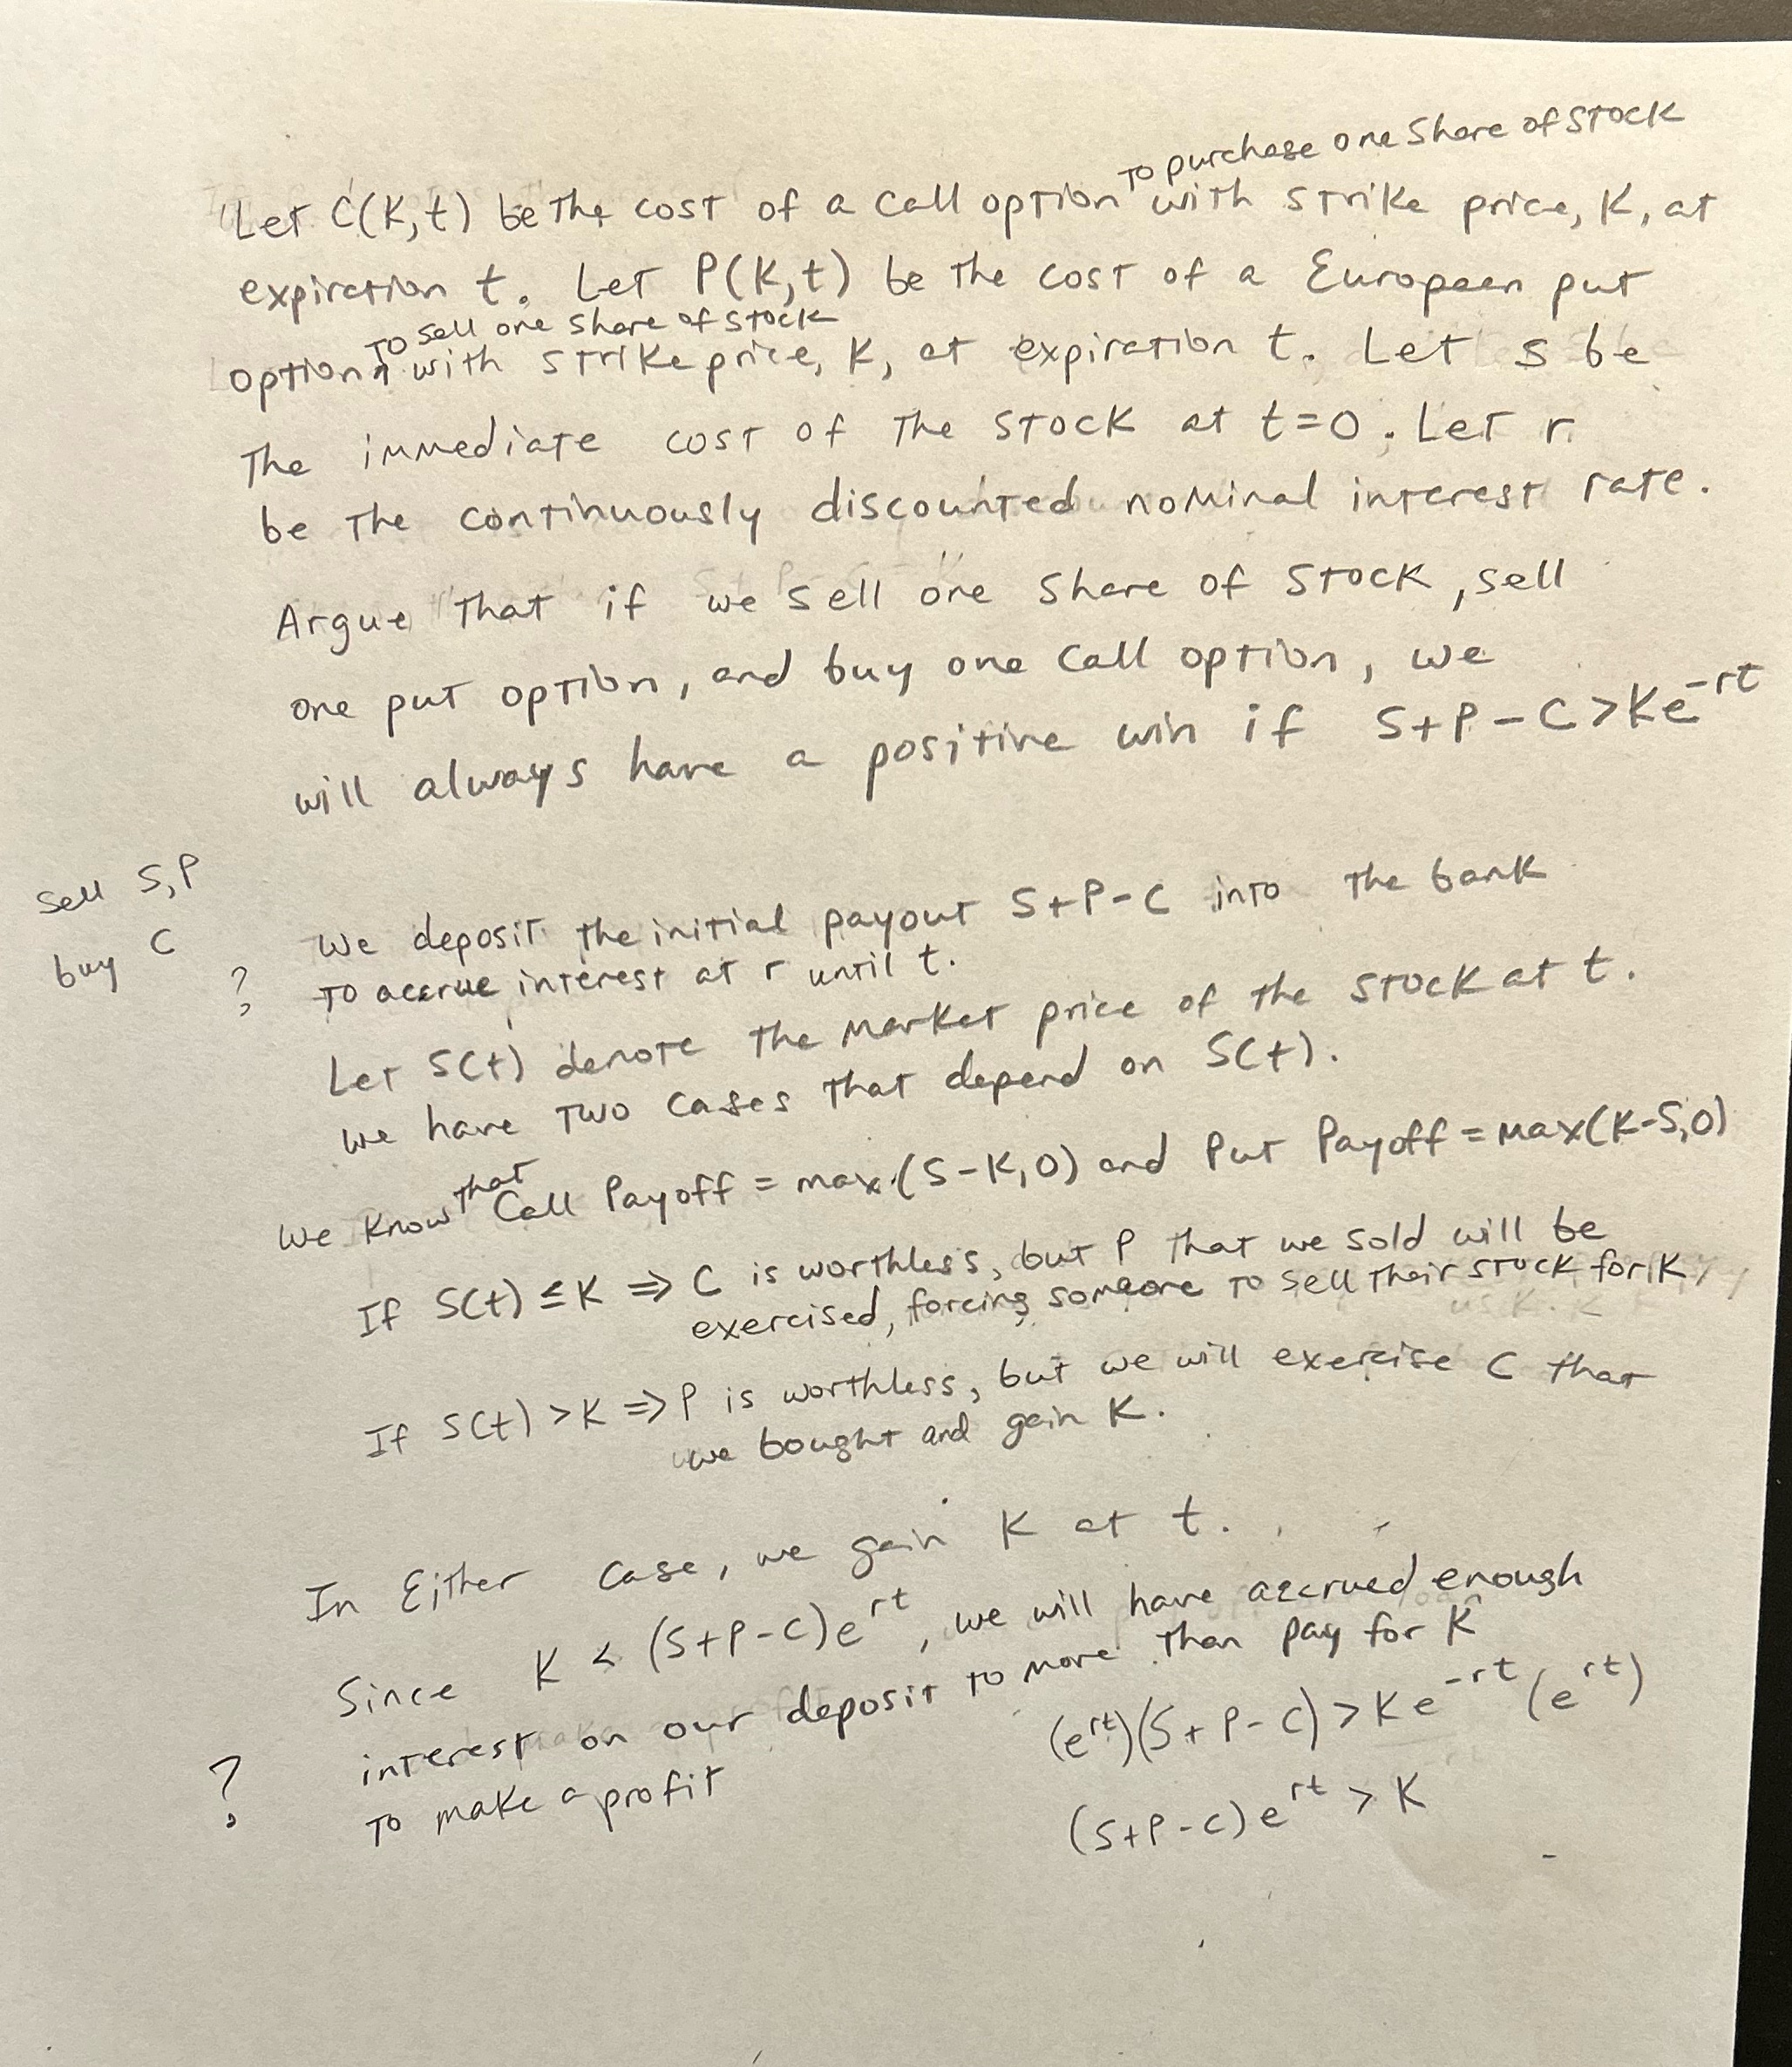 to purchase one share of stock
Let C(K,t) be the cost of a call option with strike price, K, at
expiration t. Let P(K,t) be the cost of a European put
to sell one share of stock
option, with strike price, K, at expiration t. Let s be
the immediate cost of the stock at t=0. Let r
be the continuously discounted nominal interest rate.
Argue that if we sell one share of stock, sell
one put option, and buy one call option, we
will always have a positive win if S+P-C>Ke^-rt
Sell S,P
buy C
?
We deposit the initial payout S+P-C into the bank
to accrue interest at r until t.
Let S(t) denote the market price of the stock at t.
we have two cases that depend on S(t).
We know that Call Payoff = max(S-K,0) and Put Payoff = max(K-S,0)
If S(t) ≤ K ⇒ C is worthless, but P that we sold will be
exercised, forcing someone to sell their stock for K
If S(t) > K ⇒ P is worthless, but we will exercise C that
we bought and gain K.
In Either case, we gain K at t.
Since K < (S+P-C)e^rt, we will have accrued enough
interest on our deposit to more than pay for K
?
to make a profit
(e^rt)(S+P-C) > Ke^-rt(e^rt)
(S+P-C)e^rt > K